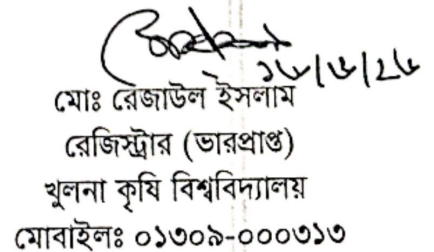 মোঃ রেজাউল ইসলাম
রেজিস্ট্রার (ভারপ্রাপ্ত)
খুলনা কৃষি বিশ্ববিদ্যালয়
মোবাইলঃ ০১৩০৯-০০০৩১৩